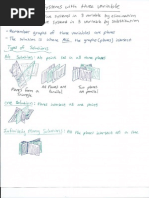 Systems with three variable
system in 3 variable by elimination
system in 3 variable by substitution
- Remember graphs of three variables are planes
- The solution is where ALL the graphs (planes) connect
Types of Solutions
No Solution: All planes not in all three
Planes form a
Triangle
All Planes are
Parallel
Two Planes are
Parallel
One Solution: Planes intersect at one point
Infinitely Many Solutions: All the planes intersect in one